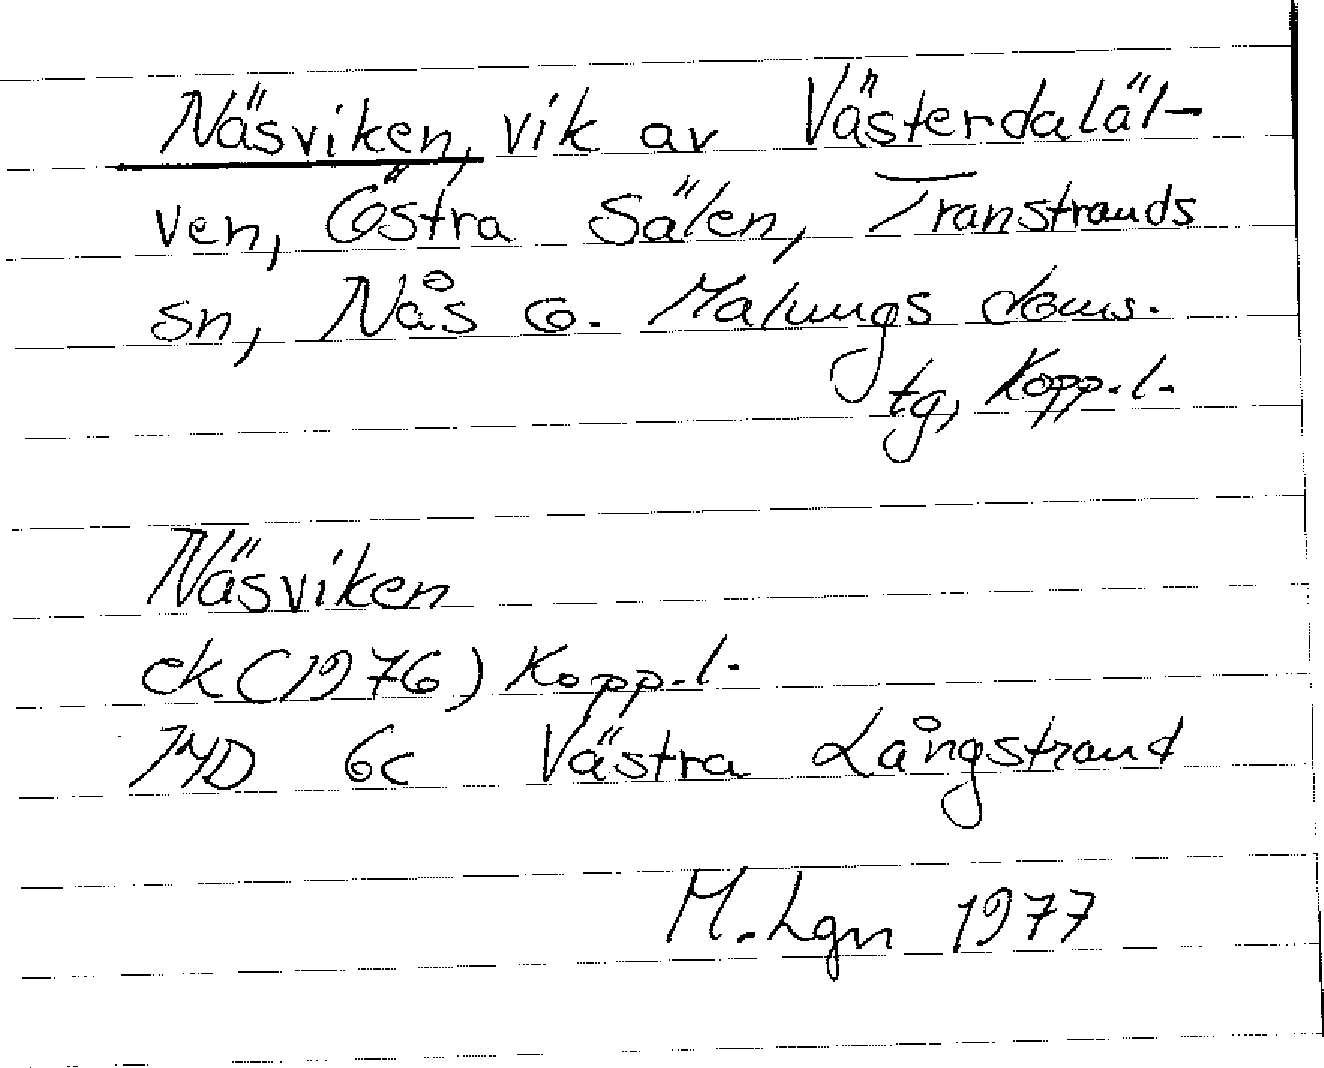 Näsviken, vik av Västerdaläl-
ven, Östra Sälen, Transtrands
sn, Nås o. Malungs doms.
tg, Kopp.l.
Näsviken
ek (1976) Kopp.l.
13D 6c Västra Långstrand
M. Lgn 1977